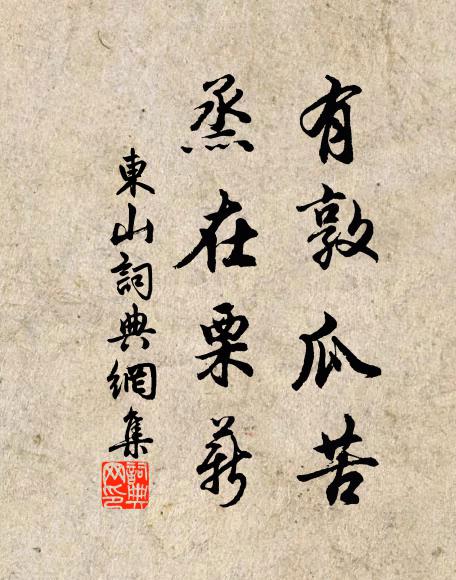 有敦瓜苦
烝在栗薪
東山詞典網集
詞典網印